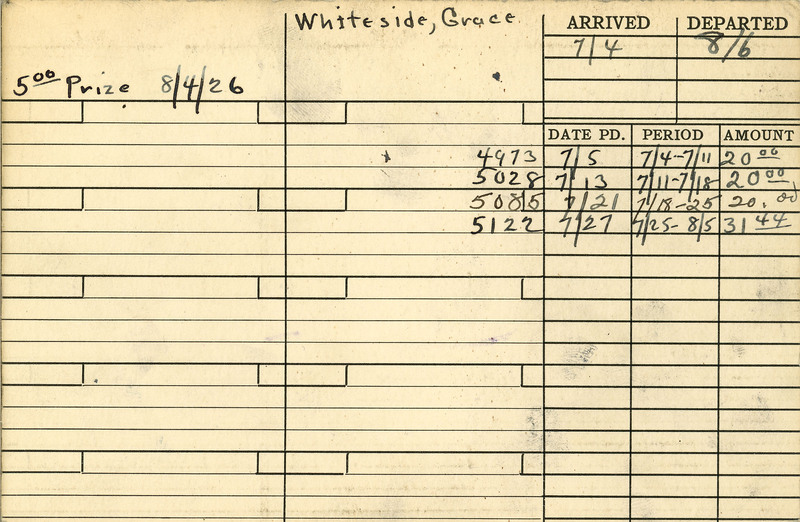 Whiteside, Grace
ARRIVED DEPARTED
7/4 8/6
5.00 Prize 8/4/26
DATE PD. PERIOD AMOUNT
4973 7/5 7/4-7/11 20 00
5028 7/13 7/11-7/18 20 00
5085 7/21 7/18-25 20.00
5122 7/27 7/25-8/5 31 44